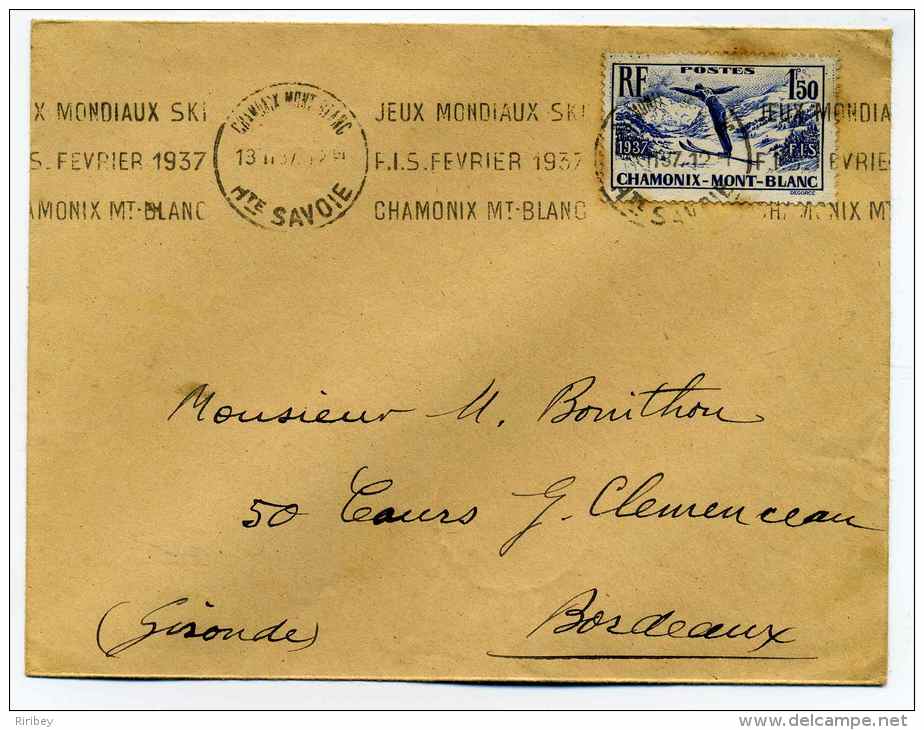 X MONDIAUX SKI
.S. FEVRIER 1937
AMONIX MT-BLANC
CHAMONIX MONT-BLANC
13 II 37
HTE SAVOIE
JEUX MONDIAUX SKI
F.I.S. FEVRIER 1937
CHAMONIX MT-BLANC
RF
POSTES
1F50
1937
F.I.S.
CHAMONIX-MONT-BLANC
DECORZE
37-12
HTE SAVOIE
JEUX MONDIA
F EVRIER
CHAMONIX MT
Monsieur M. Bonithon
50 Cours G. Clemenceau
Bordeaux
(Gironde)
Riribey
www.delcampe.net